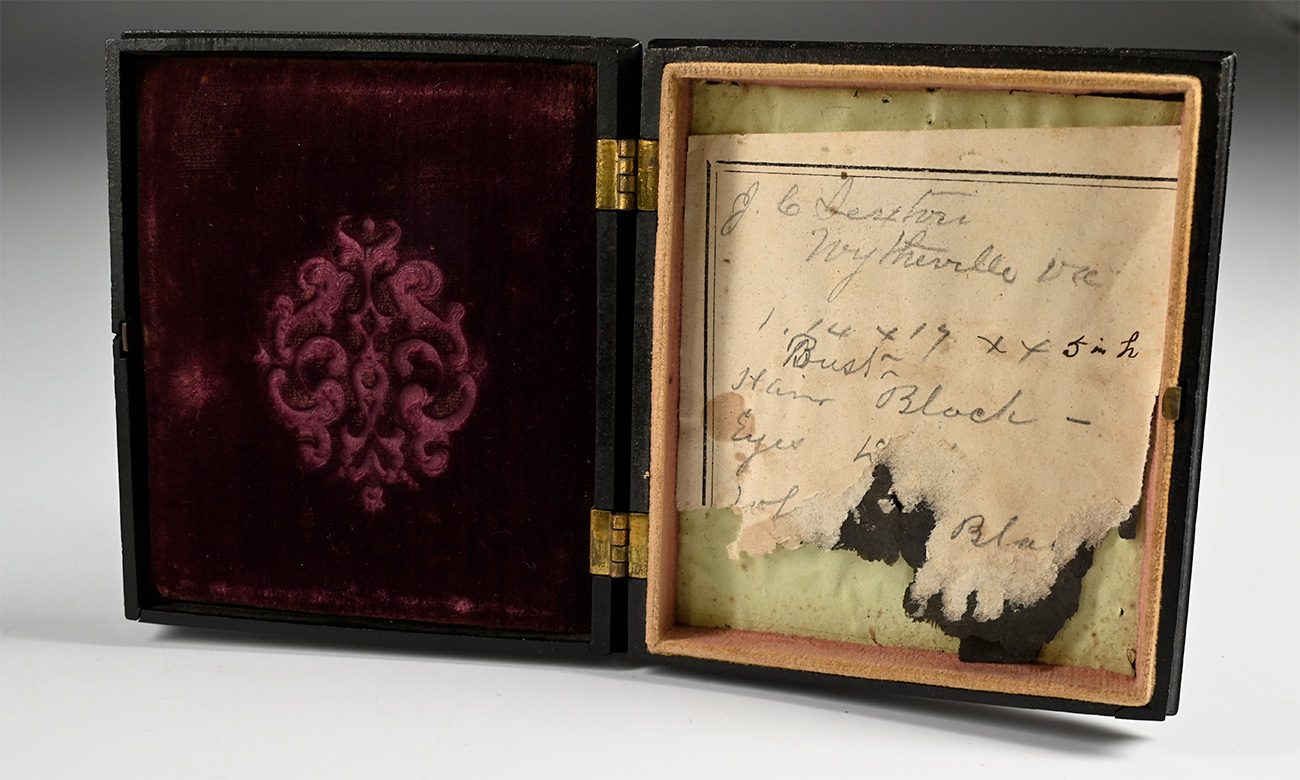 J. C. Sexton
Wytheville Va
1. 14 x 17 x x 5 in h
Bust
Hair Black —
Eyes
Bla